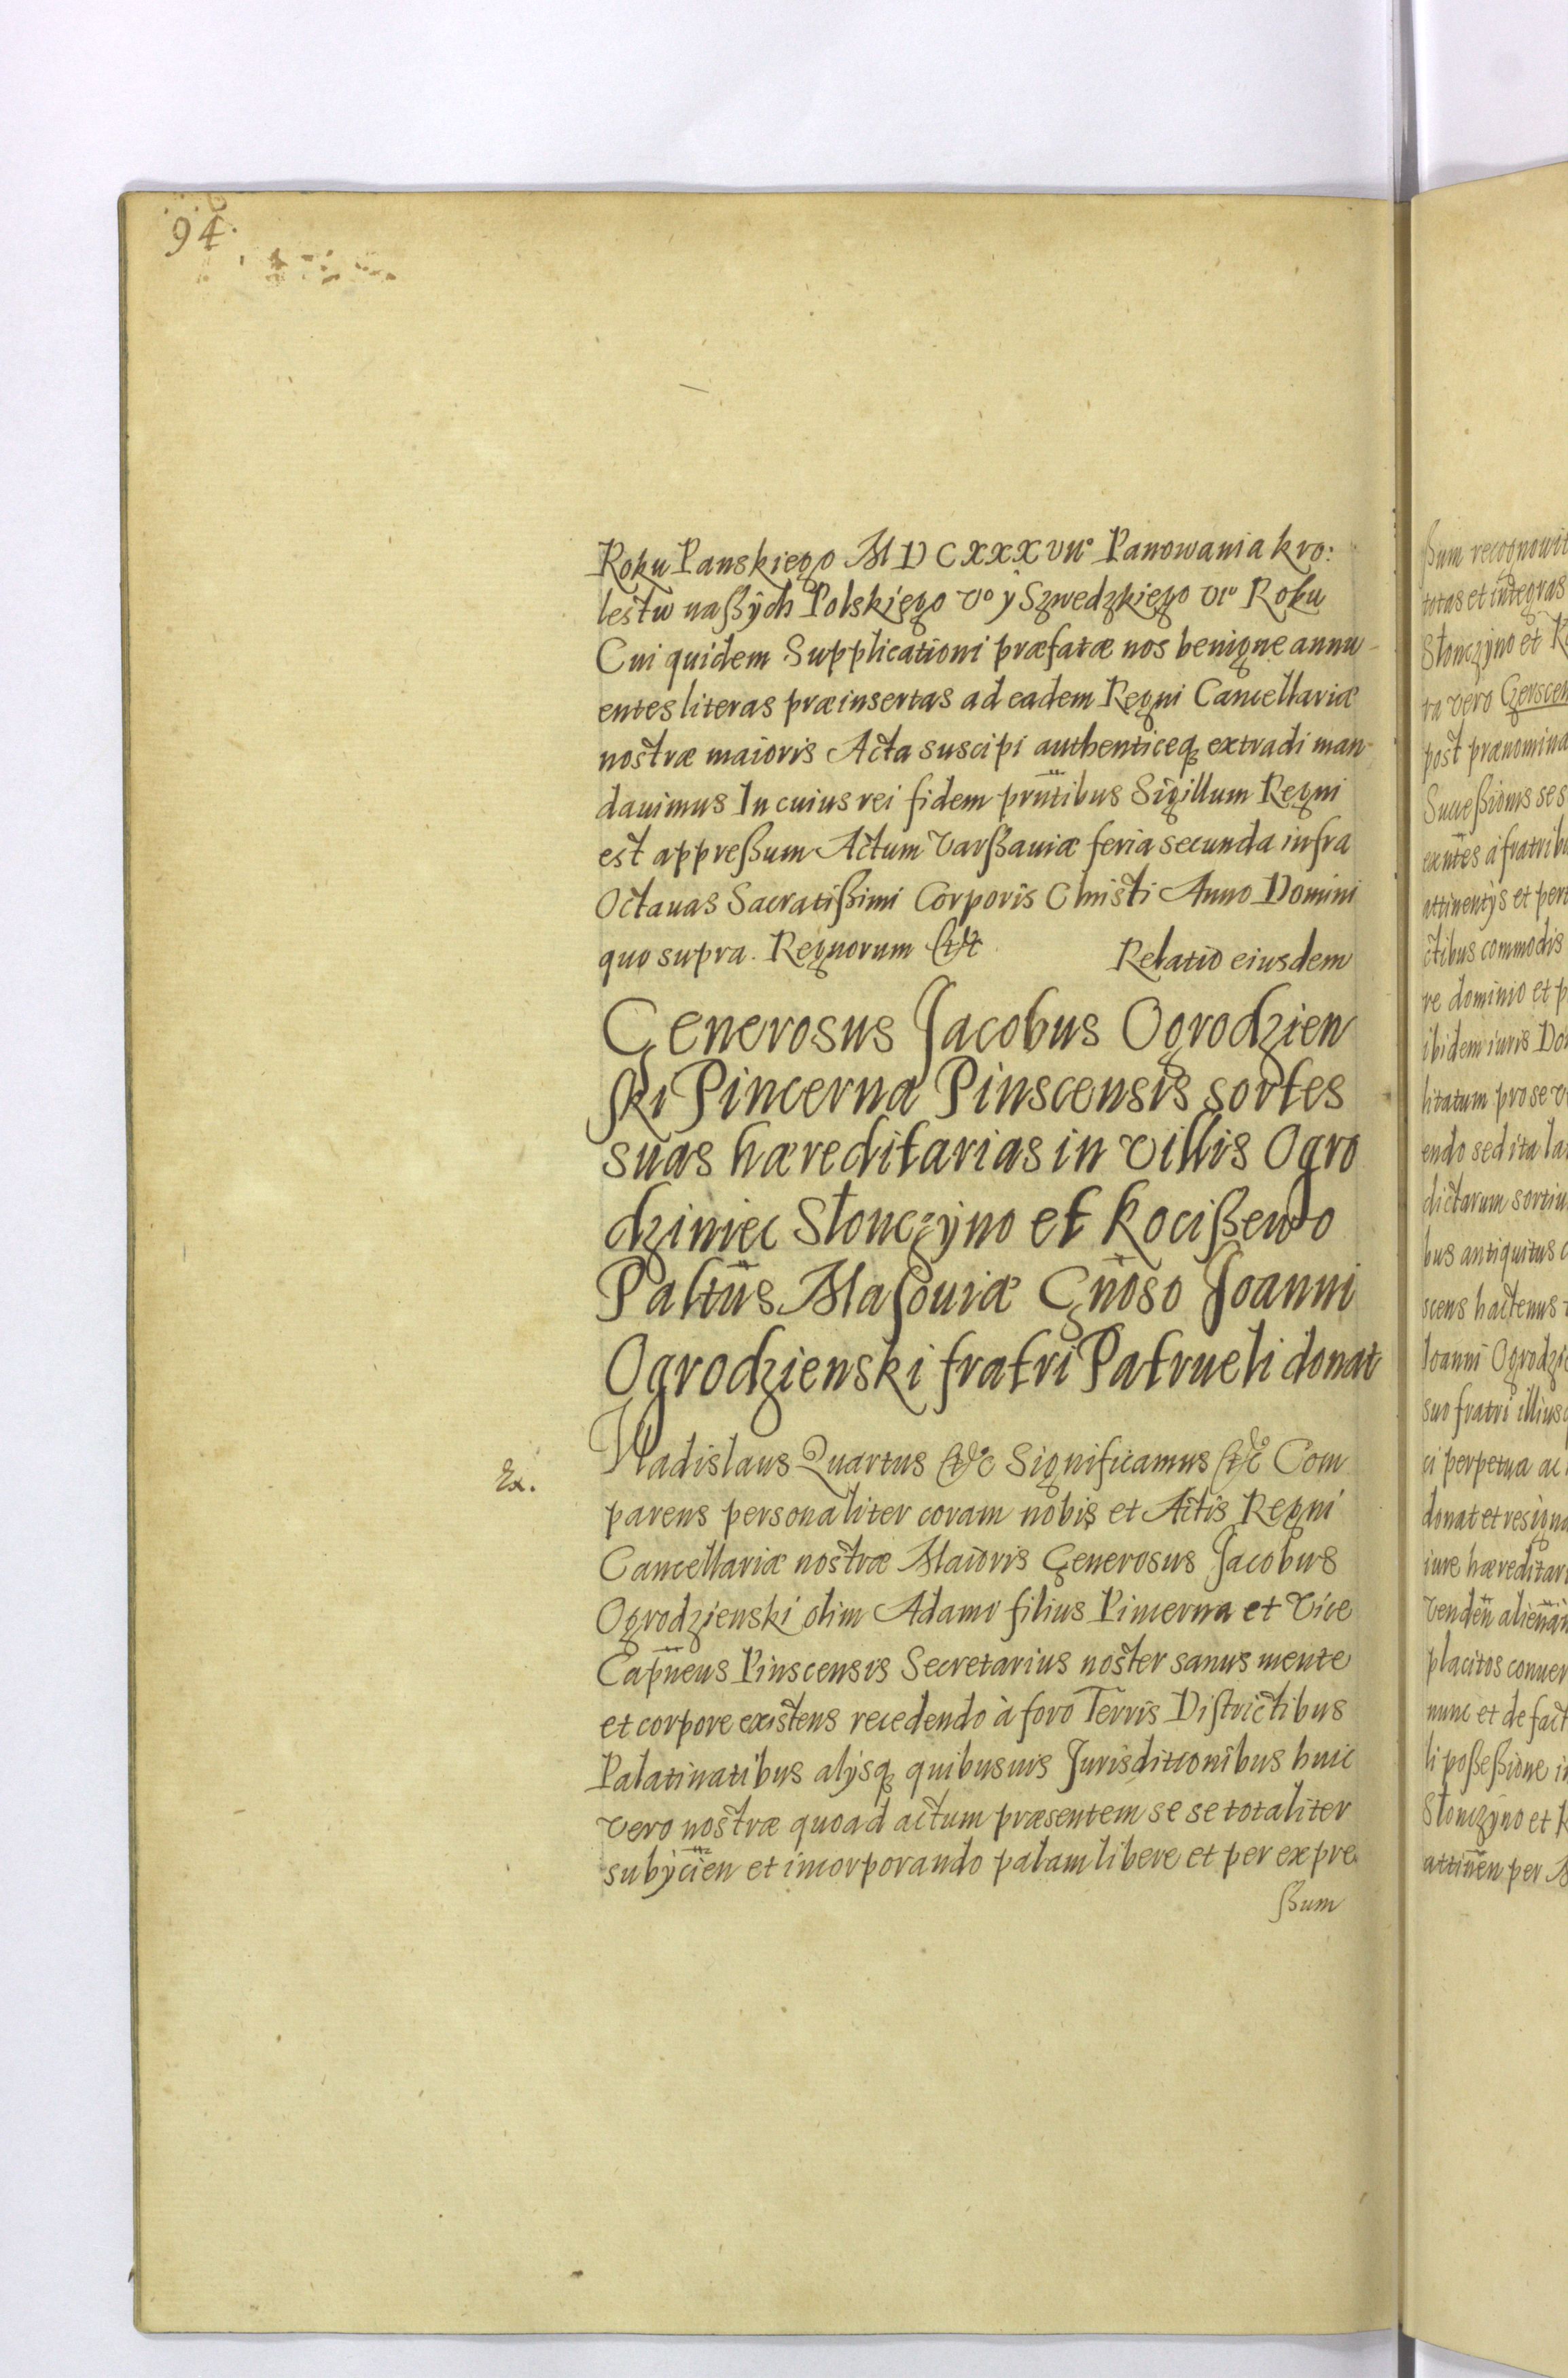 94.
Roku Panskiego MDCXXXVII° Panowania kro:
lestw naßÿch Polskiego Vo ÿ Szwedzkiego VIo Roku
Cui quidem Supplicationi præfatæ nos benigne annu-
entes literas præinsertas ad eadem Regni Cancellariæ
nostræ maioris Acta suscipi authenticeq extradi man-
dauimus In cuius rei fidem prñtibus Sigillum Regni
est appreßum Actum Varßauiæ feria secunda infra
Octauas Sacratißimi Corporis Christi Anno Domini
quo supra. Regnorum &c Relatio eiusdem
Generosus Jacobus Ogrodzien
ski Pincerna Pinscensis sortes
suas hæreditarias in Villis Ogro
dziniec Słonczÿno et Kocißewo
Paltũs Masouiæ Gñoso Joanni
Ogrodzienski fratri Patrueli donat
Ex.
Vladislaus Quartus &c Significamus &c Com
parens personaliter coram nobis et Actis Regni
Cancellariæ nostræ Maioris Generosus Jacobus
Ogrodzienski olim Adami filius Pincerna et Vice
Capñeus Pinscensis Secretarius noster sanus mente
et corpore existens recedendo à foro Terris Districtibus
Palatinatibus alÿsq quibusuis Jurisditionibus huic
vero nostræ quoad actum præsentem se se totaliter
subÿcien et incorporando palam libere et per expre
ßum
ßum recognouit
totas et integras
Słonczÿno et
ra vero
post prænomina
Succeßionis se s
exñtes à fratribu
attinentÿs et pert
ctibus commodis
re dominio et p
ibidem iuris Do
litatum pro se v
endo sed ita la
dictarum sortiu
bus antiquitus
scens hactenus
Joanni Ogrodzie
suo fratri illiusq
ci perpetua ac
donat et resigna
iure hæreditari
venden alienan
placitos conuer
nunc et de fact
li poßeßione i
Słonczÿno et K
attinen per M